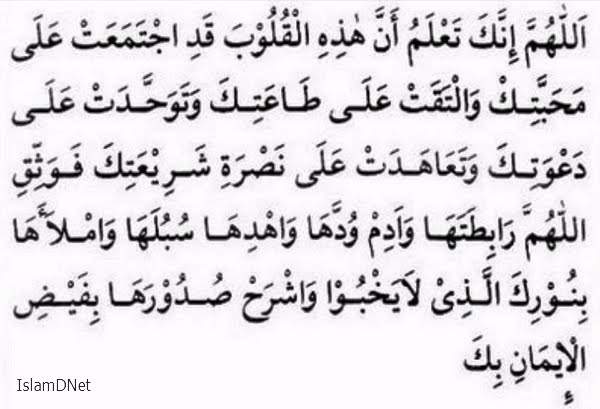 اَللّٰهُمَّ إِنَّكَ تَعْلَمُ أَنَّ هٰذِهِ الْقُلُوْبَ قَدِ اجْتَمَعَتْ عَلَى
مَحَبَّتِكْ وَالْتَقَتْ عَلَى طَاعَتِكَ وَتَوَحَّدَتْ عَلَى
دَعْوَتِكَ وَتَعَاهَدَتْ عَلَى نَصْرَةِ شَرِيْعَتِكَ فَوَثِّقِ
اللّٰهُمَّ رَابِطَتَهَا وَاَدِمْ وُدَّهَا وَاهْدِهَا سُبُلَهَا وَامْلَأَهَا
بِنُوْرِكَ الَّذِىْ لَايَخْبُوْا وَاشْرَحْ صُدُوْرَهَا بِفَيْضِ
الْإِيمَانِ بِكَ
IslamDNet